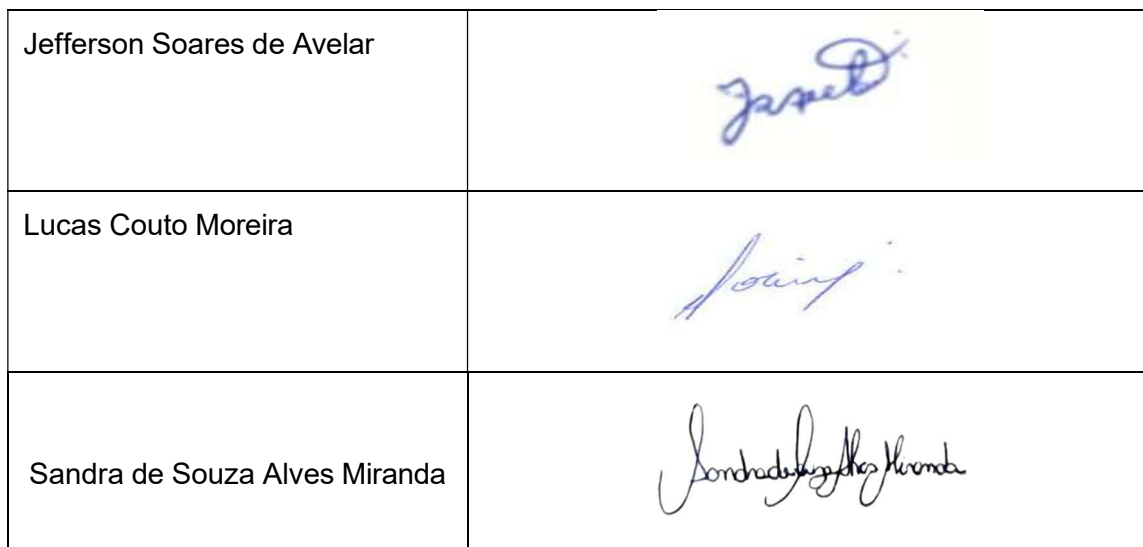 Jefferson Soares de Avelar
Lucas Couto Moreira
Sandra de Souza Alves Miranda
Sandra de Souza Alves Miranda